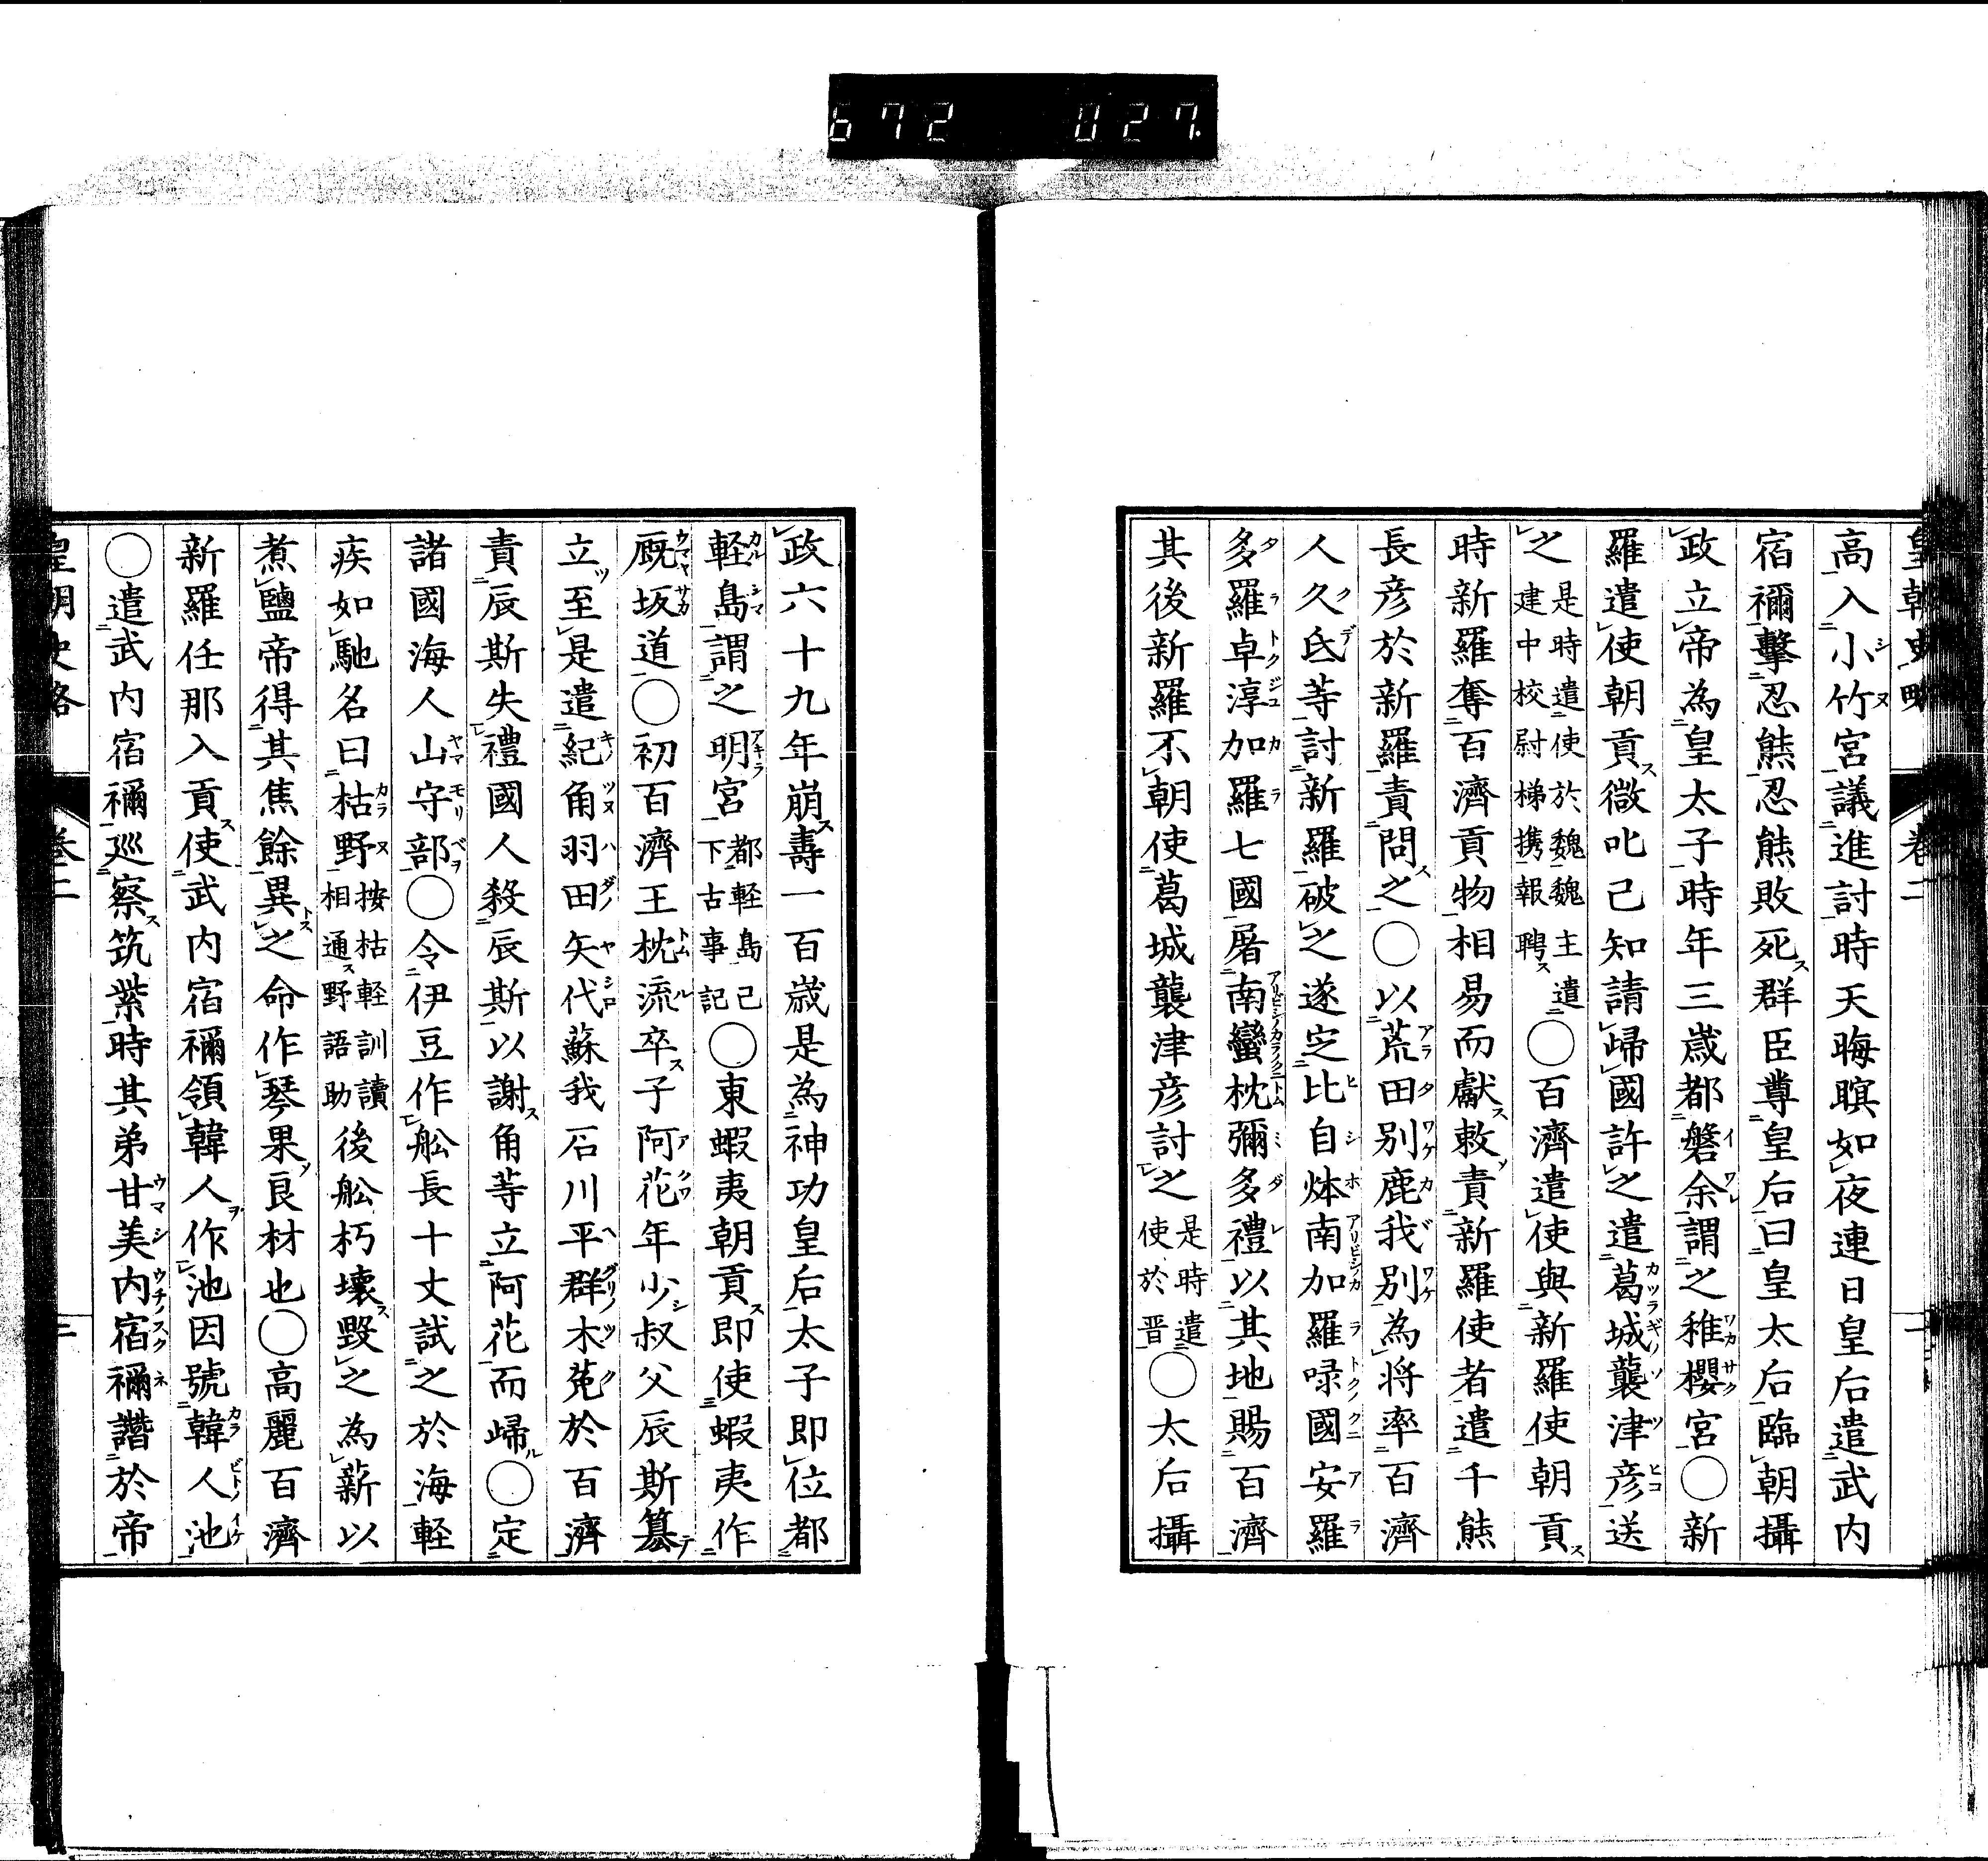 672 027
皇朝史略 卷二
高入小竹宮議進討時天晦暝如夜連日皇后遣武内
宿禰擊忍熊忍熊敗死群臣尊皇后曰皇太后臨朝攝
政立帝為皇太子時年三歲都磐余謂之稚櫻宮〇新
羅遣使朝貢微叱己知請歸國許之遣葛城襲津彦送
之是時遣使於魏魏主遣建中校尉梯携報聘〇百濟遣使與新羅使朝貢
時新羅奪百濟貢物相易而獻敕責新羅使者遣千熊
長彦於新羅責問之〇以荒田別鹿我別為將率百濟
人久氐等討新羅破之遂定比自㶱南加羅㖨國安羅
多羅卓淳加羅七國屠南蠻枕彌多禮以其地賜百濟
其後新羅不朝使葛城襲津彦討之是時遣使於晋〇太后攝
政六十九年崩壽一百歲是為神功皇后太子即位都
軽島謂之明宮都軽島已下古事記〇東蝦夷朝貢即使蝦夷作
厩坂道〇初百濟王枕流卒子阿花年少叔父辰斯簒
立至是遣紀角羽田矢代蘇我石川平群木菟於百濟
責辰斯失禮國人殺辰斯以謝角等立阿花而歸〇定
諸國海人山守部〇令伊豆作舩長十丈試之於海軽
疾如馳名曰枯野按枯軽訓讀相通野語助後舩朽壞毀之為薪以
煮鹽帝得其焦餘異之命作琴果良材也〇高麗百濟
新羅任那入貢使武内宿禰領韓人作池因號韓人池
〇遣武内宿禰巡察筑紫時其弟甘美内宿禰譖於帝
皇朝史略 卷二 二